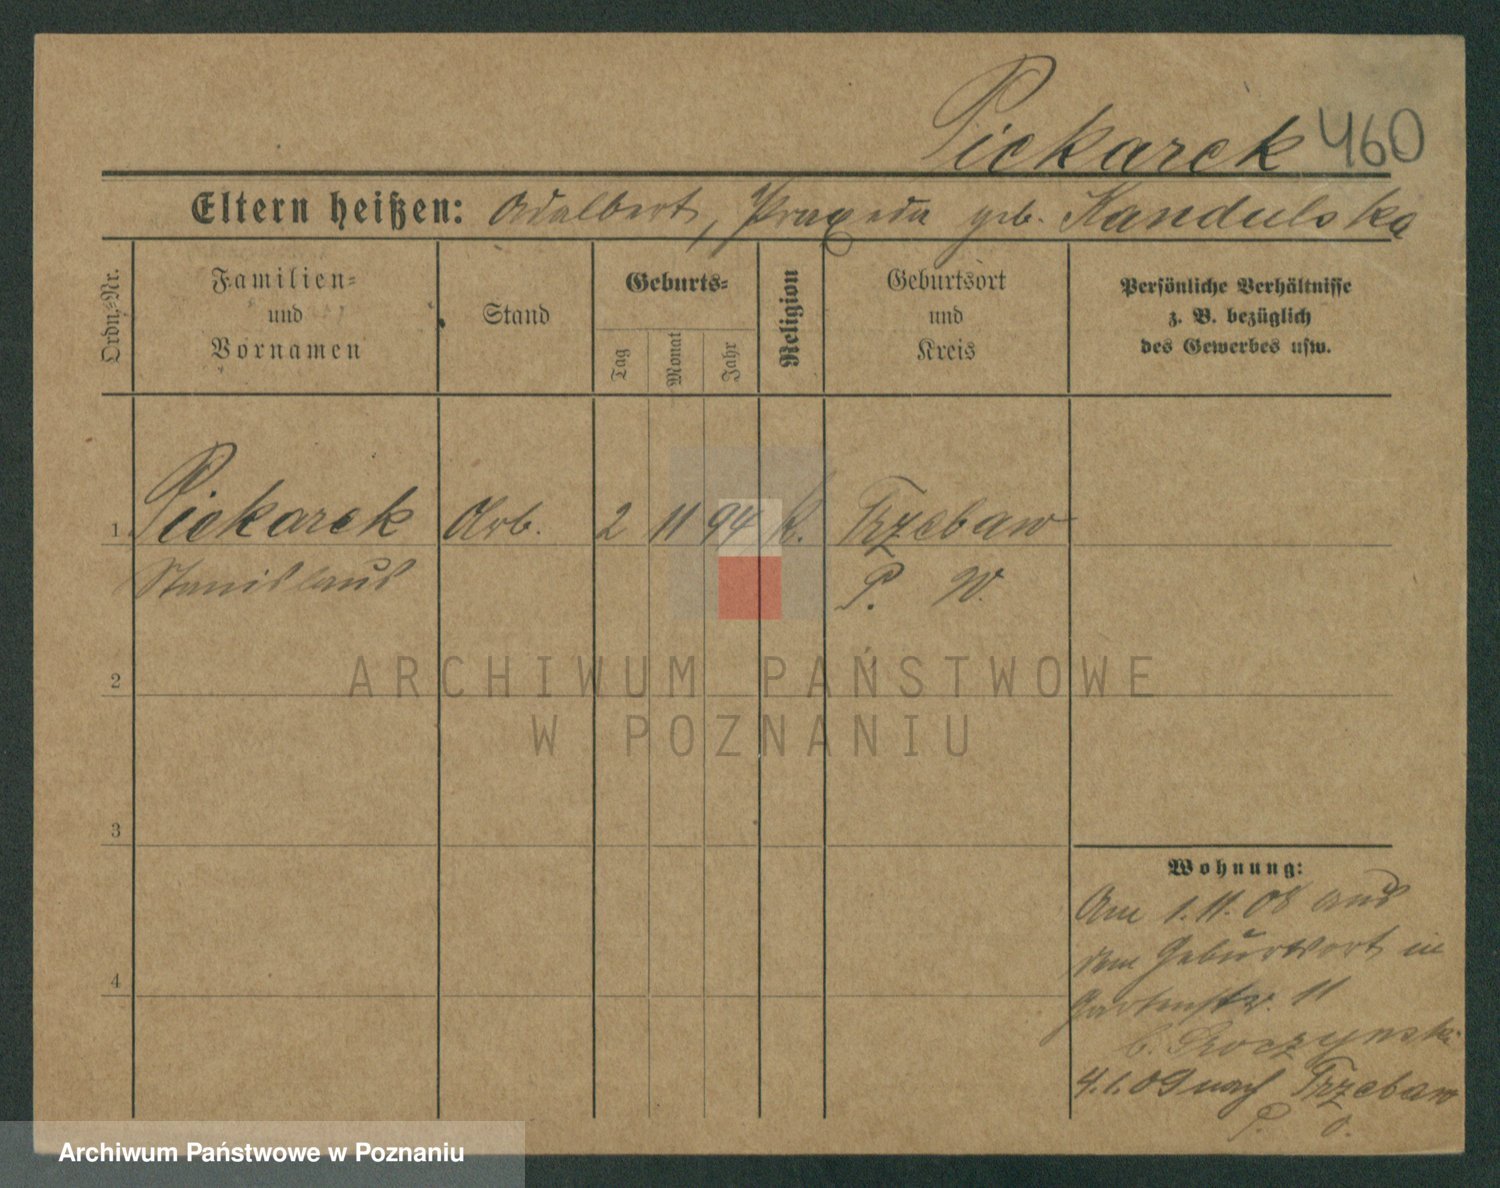 Piekarek 460
Eltern heißen: Adalbert, Praxeda geb. Kandulska
Ordn.=Nr.
Familien=
und
Vornamen
Stand
Geburts=
Tag
Monat
Jahr
Religion
Geburtsort
und
Kreis
Persönliche Verhältnisse
z. B. bezüglich
des Gewerbes usw.
1 Piekarek Arb. 2 11 94 K. Trzebaw
Stanislaus P. W.
2
3
4
Wohnung:
Am 1.11.08 aus
dem Geburtsort in
Gartenstr. 11
b.
4.1.09 nach Trzebaw
P. O.
ARCHIWUM PAŃSTWOWE
W POZNANIU
Archiwum Państwowe w Poznaniu